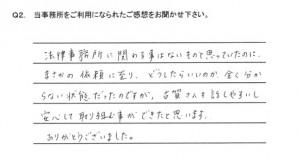 Q2. 当事務所をご利用になられたご感想をお聞かせ下さい。
法律事務所に関わる事はないものと思っていたのに、
まさかの依頼に至り、どうしたらいいのか全く分か
らない状態だったのですが、古賀さんも話しやすいし
安心して取り組む事ができたと思います。
ありがとうございました。